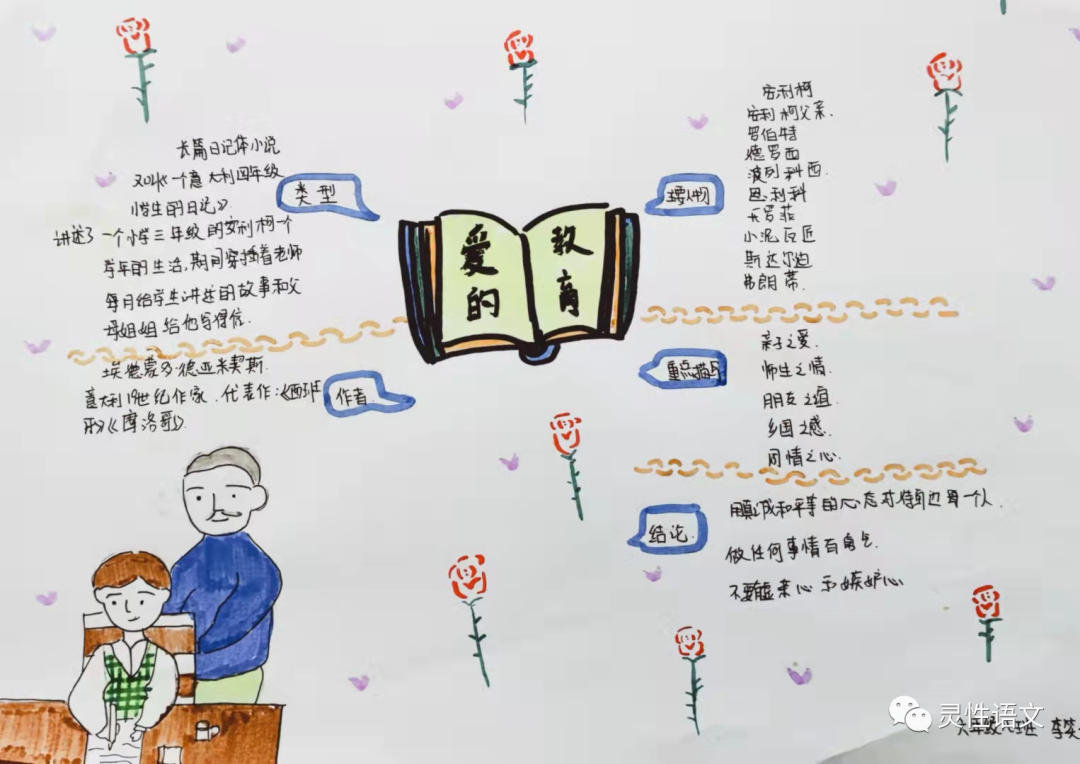 爱的
教育
类型
长篇日记体小说
又叫《一个意大利四年级
小学生的日记》.
讲述了一个小学三年级的安利柯一个
学年的生活,期间穿插着老师
每月给学生讲述的故事和父
母姐姐给他写得信.
作者.
埃德蒙多·德亚米契斯.
意大利19世纪作家.代表作:《西班
牙》《摩洛哥》.
主要人物
安利柯
安利柯父亲.
罗伯特
德罗西
波列科西.
恩利科
卡罗菲
小泥瓦匠
斯达尔迪
弗朗蒂.
重点描写
亲子之爱.
师生之情.
朋友之谊.
乡国之感.
同情之心.
结论.
用真诚和平等的心态对待身边每一个人.
做任何事情有勇气.
不要虚荣心和嫉妒心
灵性语文
六年级 班 李笑